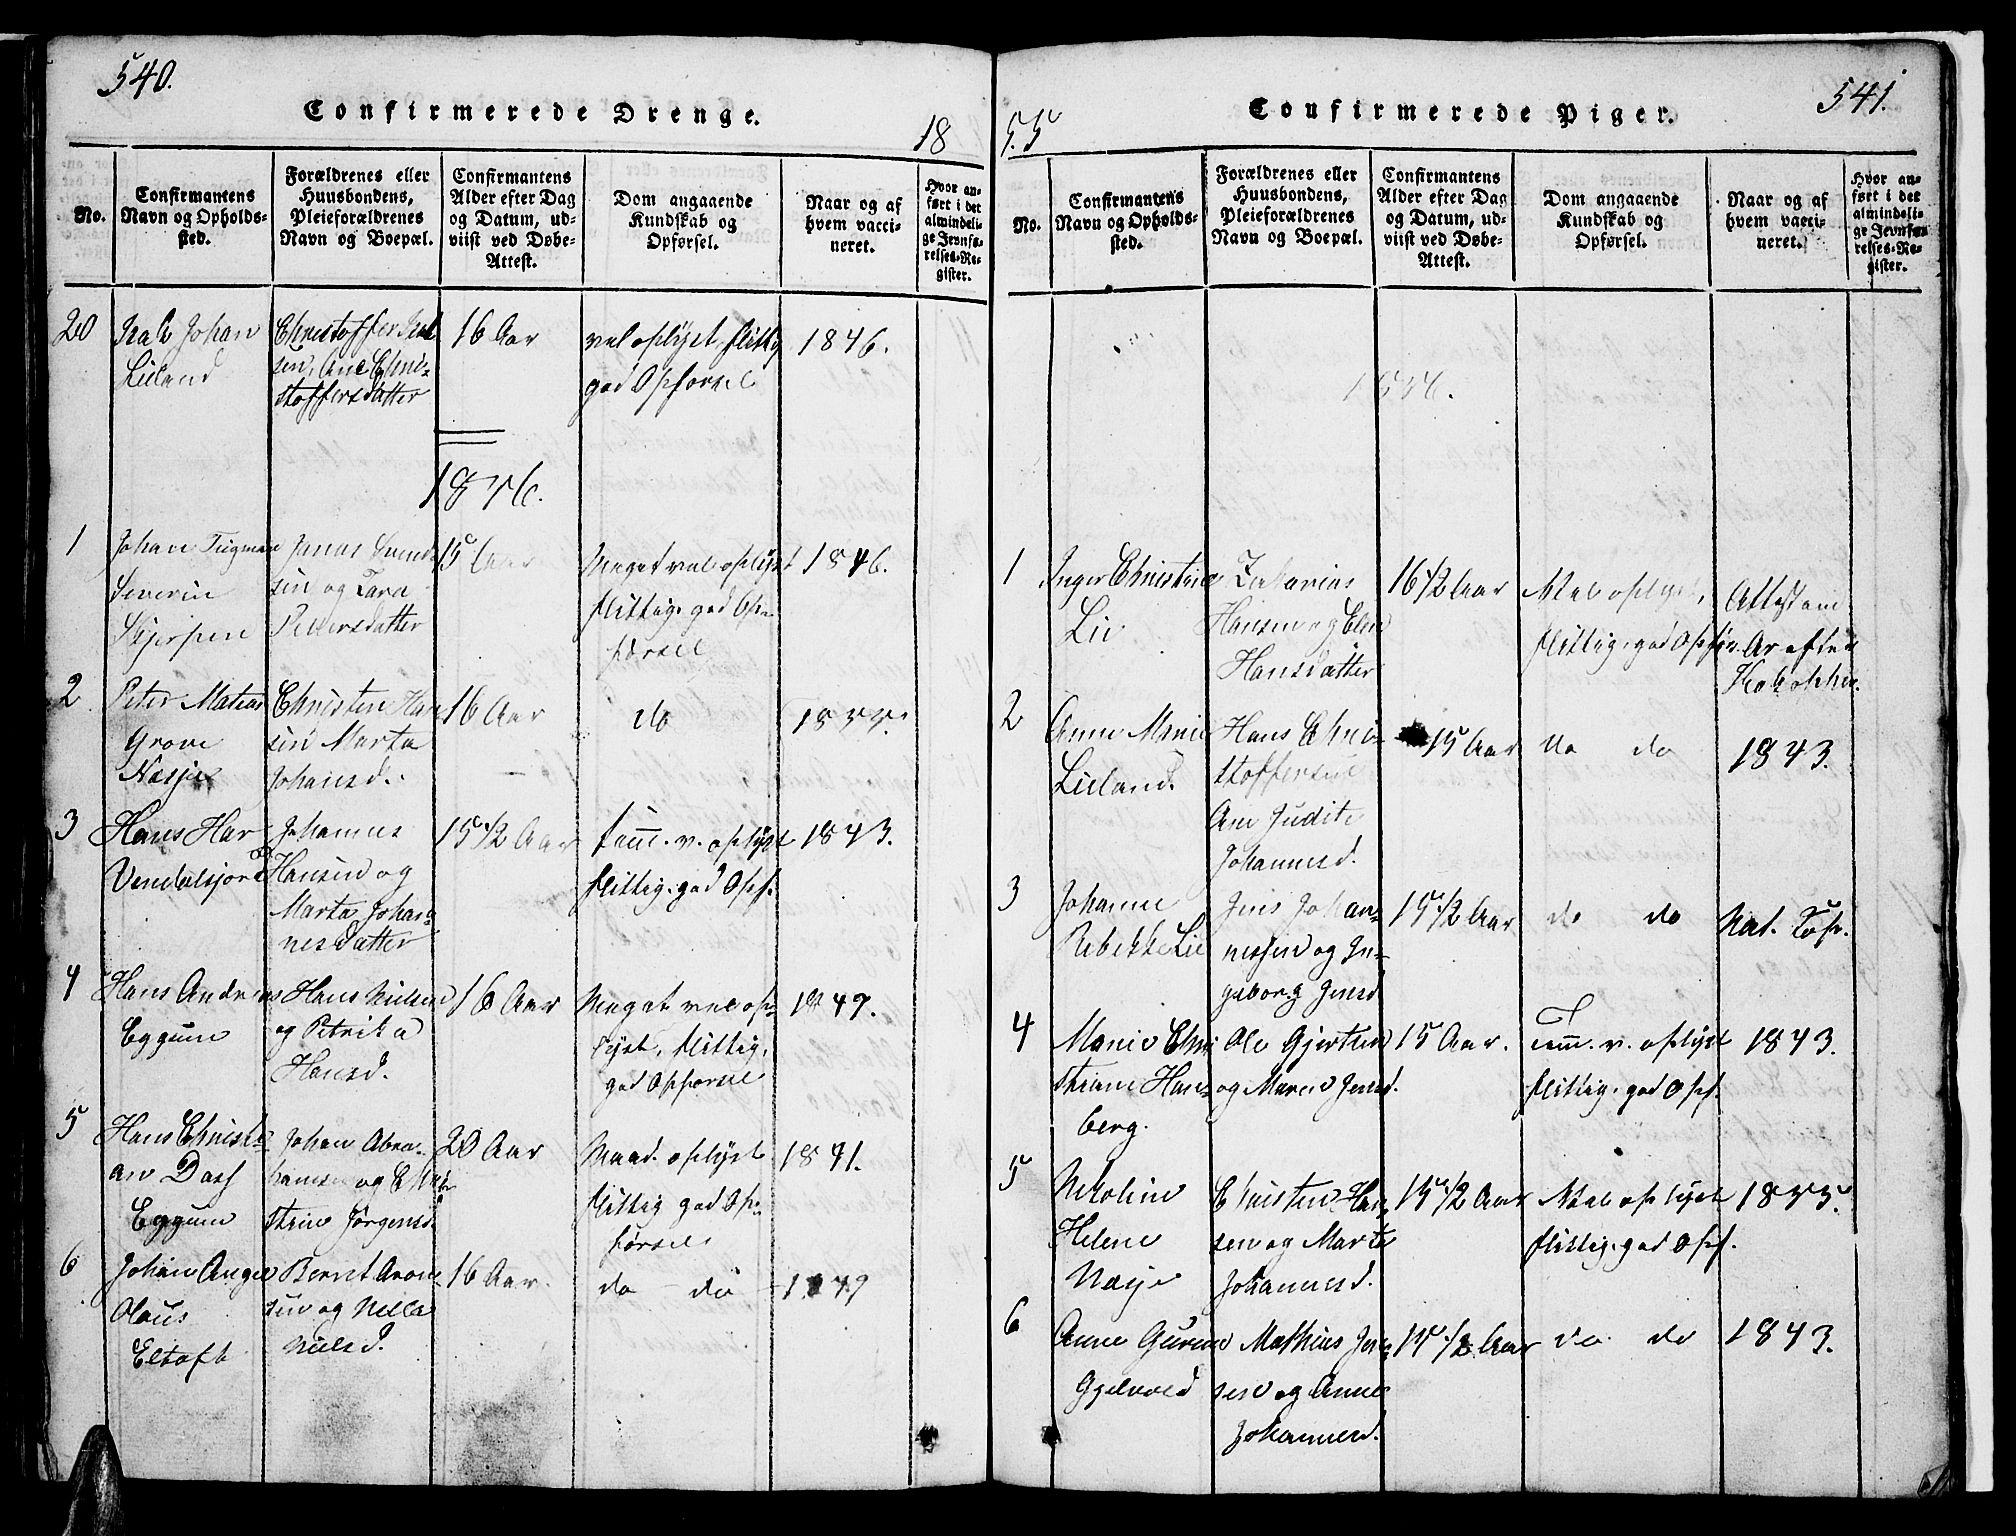 540.
Confirmerede Drenge.
18
No.
Confirmantens
Navn og Opholds-
sted.
Forældrenes eller
Huusbondens,
Pleieforældrenes
Navn og Boepæl.
Confirmantens
Alder efter Dag
og Datum, ud-
viist ved Døbe-
Attest.
Dom angaaende
Kundskab og
Opførsel.
Naar og af
hvem vacci-
neret.
Hvor an-
ført i det
almindeli-
ge Jevnfø-
relses-Re-
gister.
20
Isak Johan
Lieland
Christoffer Isak
sen, Ane Chri-
stoffersdatter
16 Aar
vel oplyst, flittig
god Opførsel
1846.
1
Johan Tugman
Severin
Skjerpen
Jonas Svend
sen og Lava
Pedersdatter
15 Aar
Meget vel oplyst
flittig, god Op-
førsel
1846.
2
Peter Matias
Grove
Næsje
Christen Han
sen Marta
Johansd.
16 Aar
do
3
Hans Har
Vendalsjord
Johannes
Hansen og
Marta Johan-
nesdatter
15 1/2 Aar
temm. v. oplyst
flittig, god Opf.
1843.
4
Hans Andreas
Eggum
Hans Nielsen
og Petrika
Hansd.
16 Aar
Meget vel op-
lyst, flittig,
god Opførsel
1849.
5
Hans Christi-
an Dass
Eggum
Johan Abra-
hamsen og
Jørgensd.
20 Aar
Maad. oplyst
flittig god Op-
førsel
1841.
6
Johan Ange
Olaus
Eltoft
Bernt Aron
sen og
Nielsd.
16 Aar.
do do
1849
55
Confirmerede Piger.
541.
No.
Confirmantens
Navn og Opholds-
sted.
Forældrenes eller
Huusbondens,
Pleieforældrenes
Navn og Boepæl.
Confirmantens
Alder efter Dag
og Datum, ud-
viist ved Døbe-
Attest.
Dom angaaende
Kundskab og
Opførsel.
Naar og af
hvem vacci-
neret.
Hvor an-
ført i det
almindeli-
ge Jevnfø-
relses-Re-
gister.
1
Inger Christine
Lie
Zakarias
Hansen og Elen
Hansdatter
16 1/2 Aar
vel oplyst,
flittig, god Opfør.
Attest om
Ar efter
Kokopper.
2
Anne Marie
Lieland.
Hans Chri-
stoffersen
Ane Judite
Johannesd.
15 Aar
do do
1843.
3
Johanne
Rebekke Lie
Jens Johan-
nessen og In-
geborg Jensd
15 1/2 Aar
do do
Nat. Kop.
4
Marie Chri
stiane Hans
berg.
Ole Gjertsen
og Maren Jensd.
15 Aar.
Temm. v. oplyst
flittig, god Opf.
1843.
5
Nikoline
Helene
Næsje
Christen Han-
sen og Marte
Johannesd.
15 1/2 Aar
vel oplyst
flittig, god Opf.
6
Anne Guren
Gjelvold
Mathias Jen-
sen og Anne
Johannesd.
15 1/2 Aar
do do
1843.